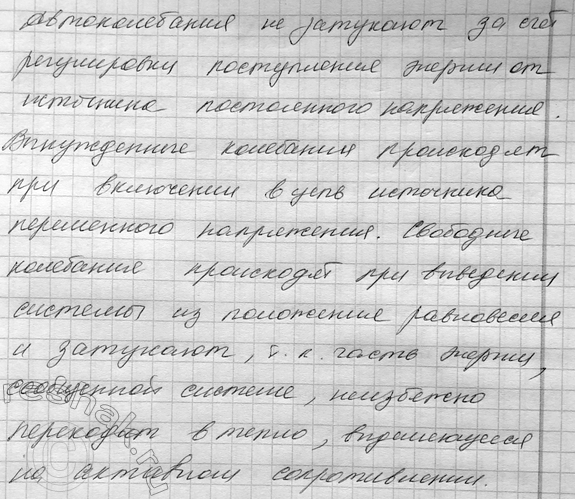 Автоколебания не затухают за счёт
регулировки поступления энергии от
источника постоянного напряжения.
Вынужденные колебания происходят
при включении в цепь источника
переменного напряжения. Свободные
колебания происходят при выведении
системы из положения равновесия
и затухают, т.к. часть энергии,
сообщенной системе, неизбежно
переходит в тепло, выделяющееся
на активном сопротивлении.
reshak.ru